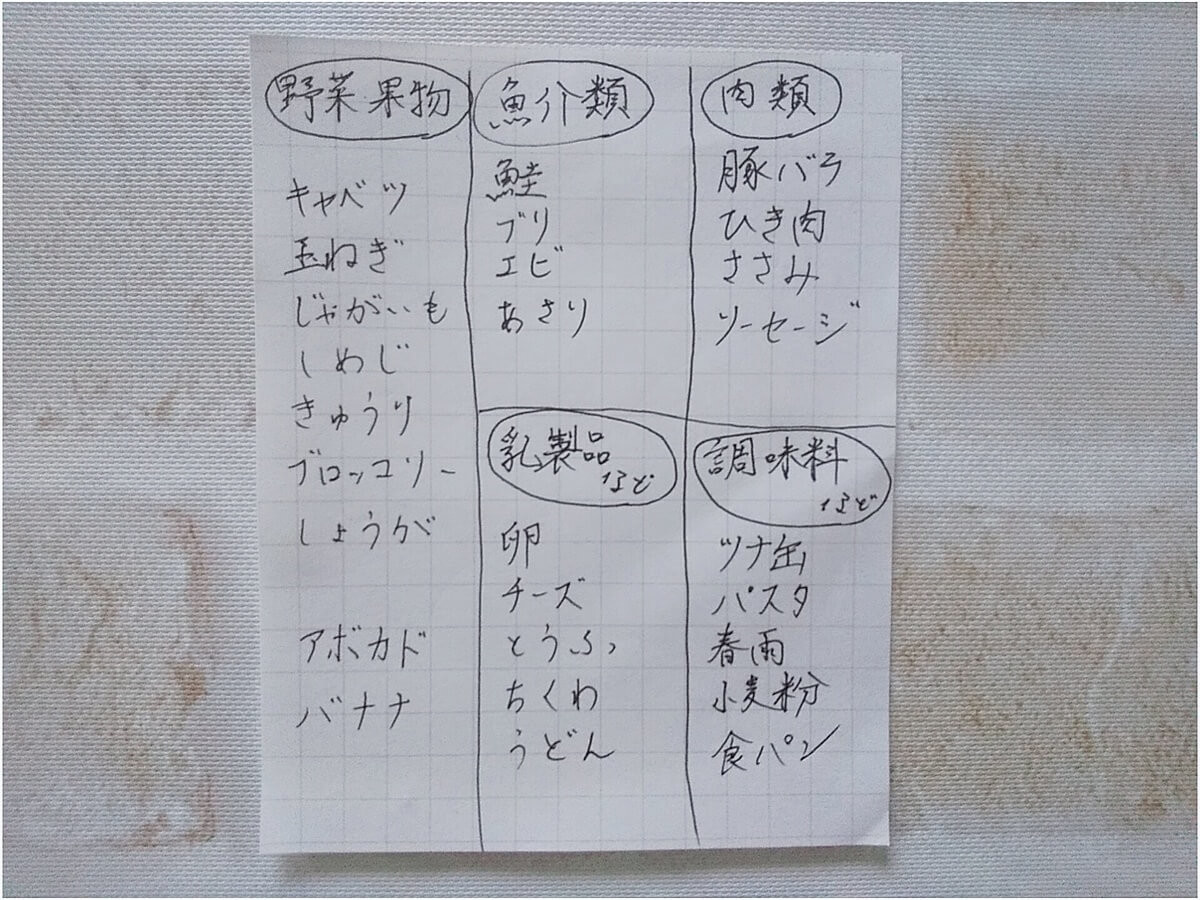 野菜 果物
キャベツ
玉ねぎ
じゃがいも
しめじ
きゅうり
ブロッコリー
しょうが
アボカド
バナナ
魚介類
鮭
ブリ
エビ
あさり
肉類
豚バラ
ひき肉
ささみ
ソーセージ
乳製品
など
卵
チーズ
とうふ
ちくわ
うどん
調味料
など
ツナ缶
パスタ
春雨
小麦粉
食パン